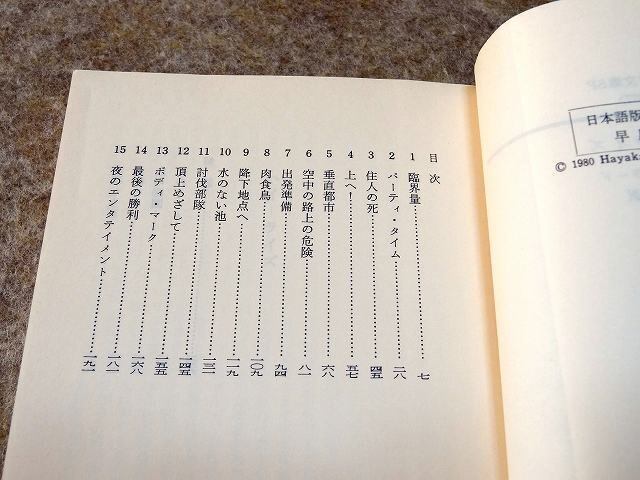 目次
1 臨界量………七
2 パーティ・タイム………二八
3 住人の死………四五
4 上へ!………五七
5 垂直都市………六八
6 空中の路上の危険………八一
7 出発準備………九四
8 肉食鳥………一〇九
9 降下地点へ………一一九
10 水のない池………一三一
11 討伐部隊………一四五
12 頂上めざして………一五五
13 ボディ・マーク………一六八
14 最後の勝利………一八一
15 夜のエンタテイメント………一九一
日本語版
早
© 1980 Hayak